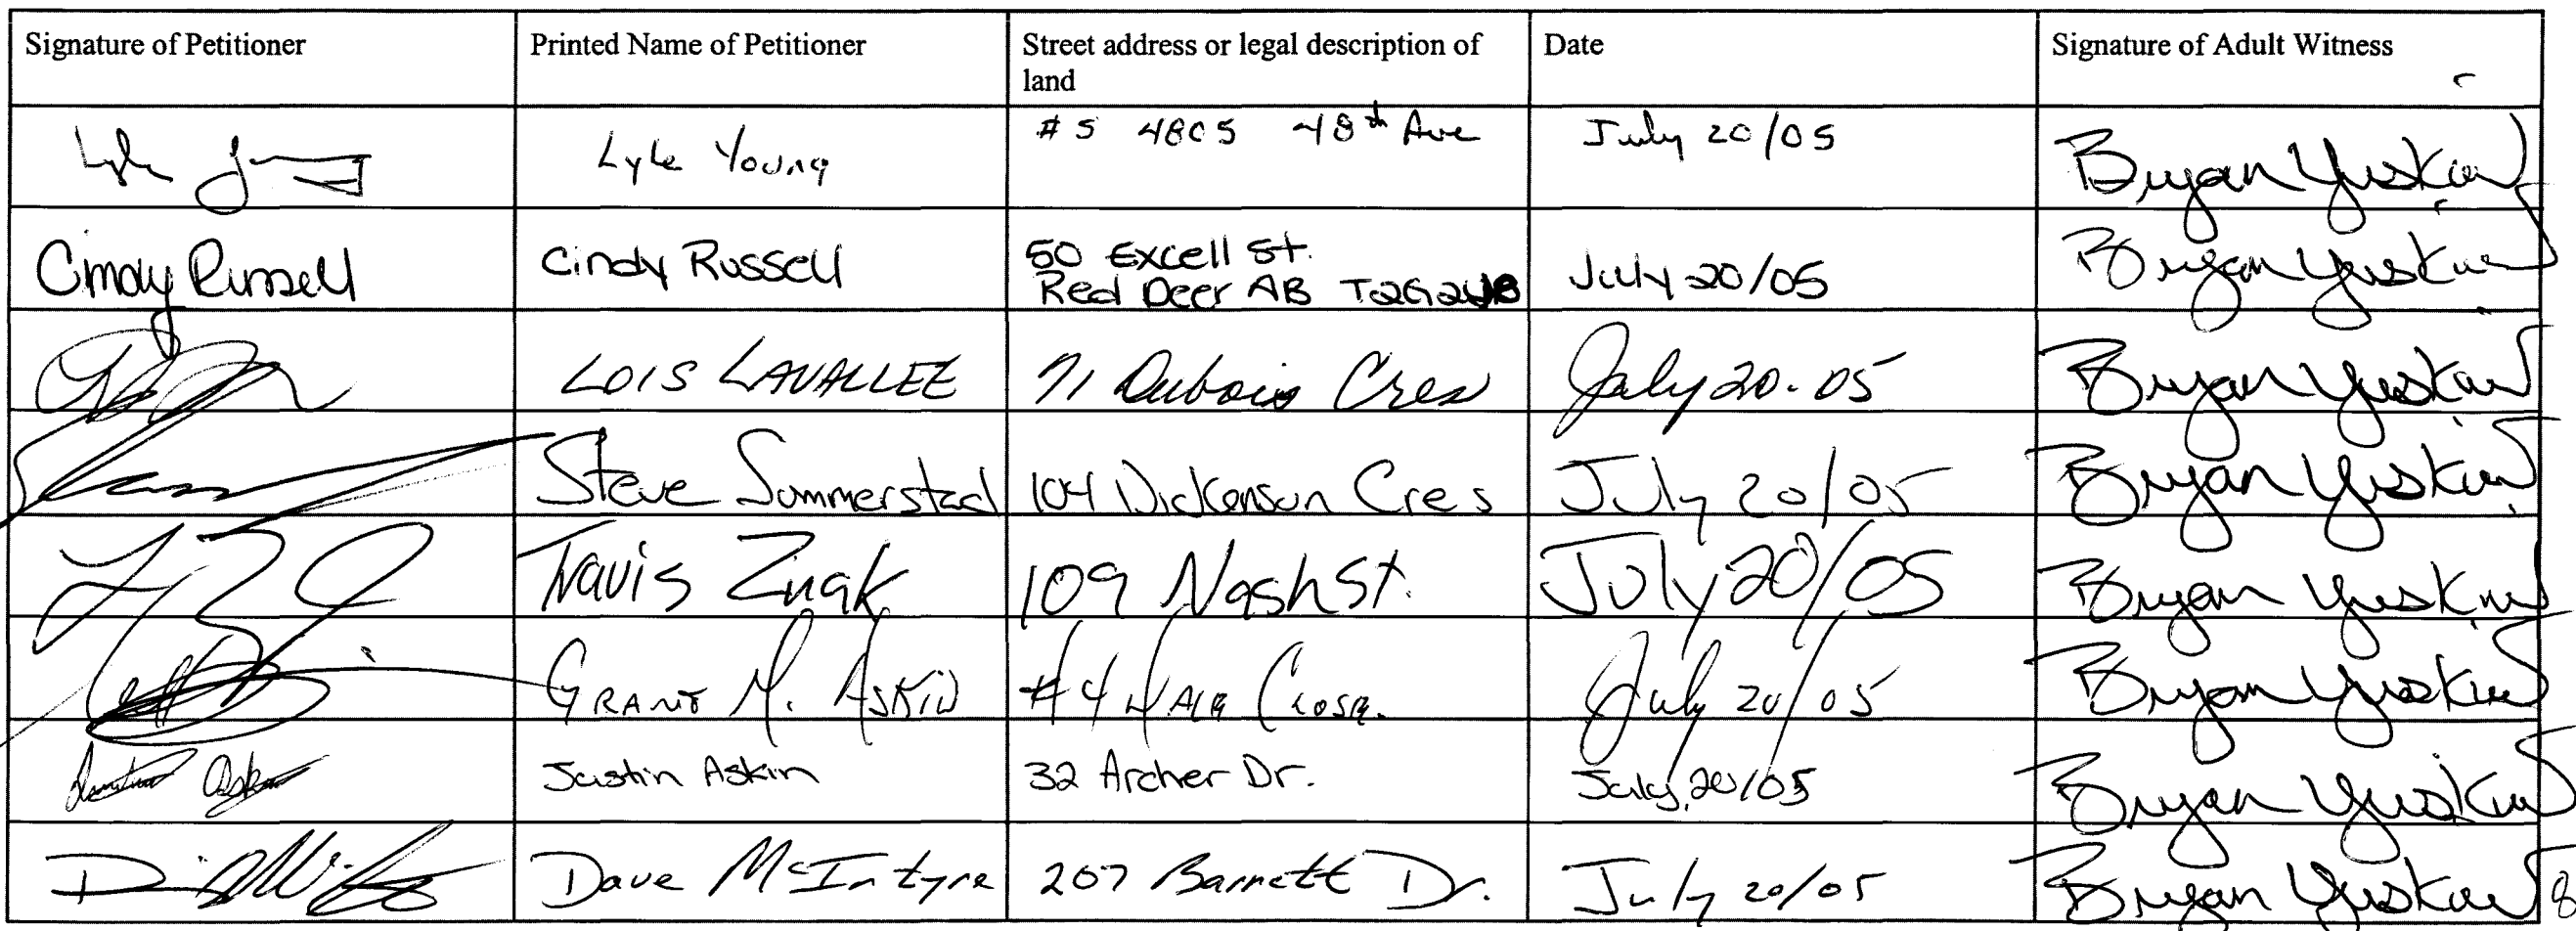 Signature of Petitioner
Printed Name of Petitioner
Street address or legal description of
land
Date
Signature of Adult Witness
Lyle Young
# 5 4805 48th Ave
July 20/05
Bryan Yuskiw
Cindy Russell
Cindy Russell
50 Excell St.
Red Deer AB
July 20/05
Bryan Yuskiw
LOIS LAVALLEE
71 Dubois Cres
July 20-05
Bryan Yuskiw
Steve Sommerstad
104 Dickenson Cres
July 20/05
Bryan Yuskiw
Travis Znak
109 Nash St.
July 20/05
Bryan Yuskiw
GRANT M. ASKIN
#4 Close.
July 20/05
Bryan Yuskiw
Justin Askin
32 Archer Dr.
July 20/05
Bryan Yuskiw
Dave McIntyre
207 Barrett Dr.
July 20/05
Bryan Yuskiw
8